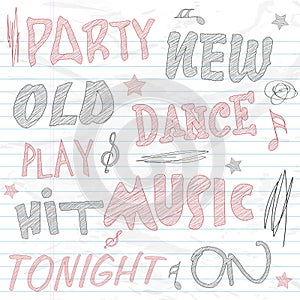 PARTY NEW
OLD DANCE
PLAY
HiT MUSIC
TONIGHT ON